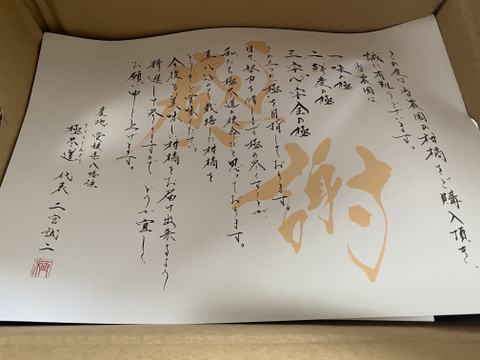 感謝
この度は当農園の柑橘をご購入頂き、
誠に有難うございます。
当農園は
一 味の極
二 鮮度の極
三 安心安全の極
この三つの極を目指しております。
日々努力を
使命だと思っております。
真心込めて栽培した柑橘を
今後も美味しい柑橘をお届け出来ますよう
精進して参りますので、どうか宜しく
お願い申し上げます。
産地 愛媛県八幡浜
代表 二宮誠二